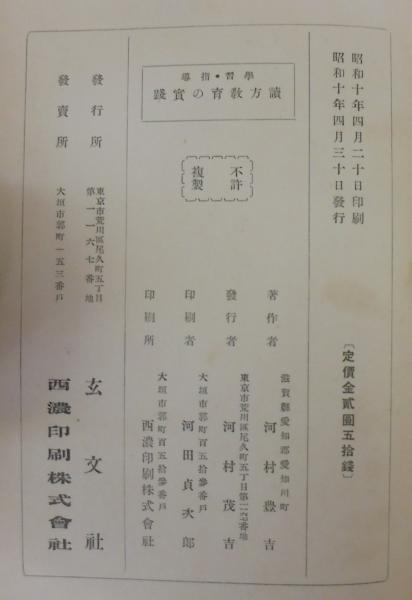 昭和十年四月二十日印刷
昭和十年四月三十日發行
〔定價金貳圓五拾錢〕
學習・指導
讀方教育の實踐
不許
複製
著作者
滋賀縣愛知郡愛知川町
河村豊吉
發行者
東京市荒川區尾久町五丁目第一一六七番地
河村茂吉
印刷者
大垣市郭町百五拾參番戶
河田貞次郎
印刷所
大垣市郭町百五拾參番戶
西濃印刷株式會社
發行所
東京市荒川區尾久町五丁目
第一一六七番地
玄文社
發賣所
大垣市郭町一五三番戶
西濃印刷株式會社